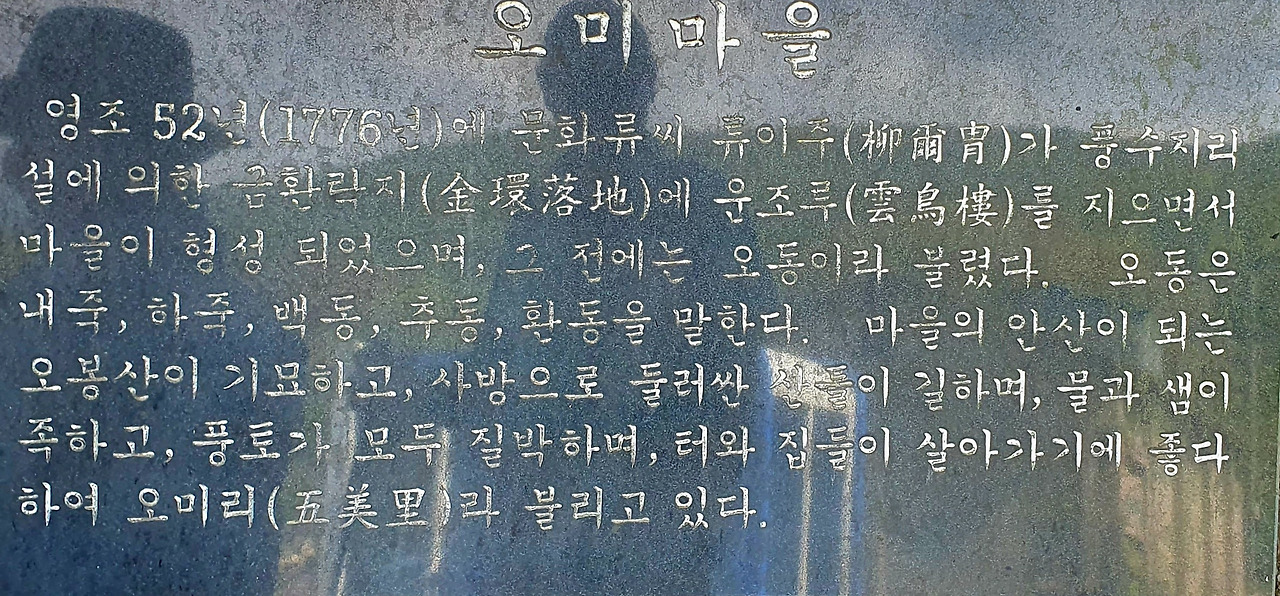 오미마을
영조 52년(1776년)에 문화류씨 류이주(柳爾冑)가 풍수지리
설에 의한 금환락지(金環落地)에 운조루(雲鳥樓)를 지으면서
마을이 형성 되었으며, 그 전에는 오동이라 불렸다. 오동은
내죽, 하죽, 백동, 추동, 환동을 말한다. 마을의 안산이 되는
오봉산이 기묘하고, 사방으로 둘러싼 산들이 길하며, 물과 샘이
족하고, 풍토가 모두 질박하며, 터와 집들이 살아가기에 좋다
하여 오미리(五美里)라 불리고 있다.